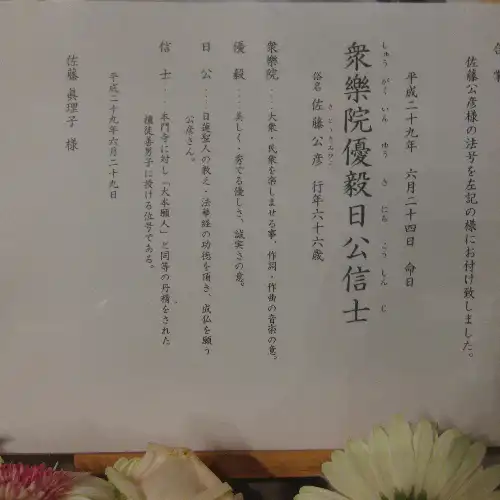 佐藤公彦様の法号を左記の様にお付け致しました。
平成二十九年 六月二十四日 命日
衆樂院優毅日公信士
しゅう がく いん ゆう き にち こう しん じ
俗名 佐藤公彦 行年六十六歳
さとうきみひこ
衆樂院‥‥大衆・民衆を楽しませる事、作詞・作曲の音楽の意。
優毅‥‥美しく・秀でる優しさ、誠実さの意。
日公‥‥日蓮聖人の教え・法華経の功徳を頂き、成仏を願う
公彦さん。
信士‥‥本門寺に対し「大本願人」と同等の丹精をされた
檀徒善男子に授ける位号である。
平成二十九年六月二十九日
佐藤眞理子 様